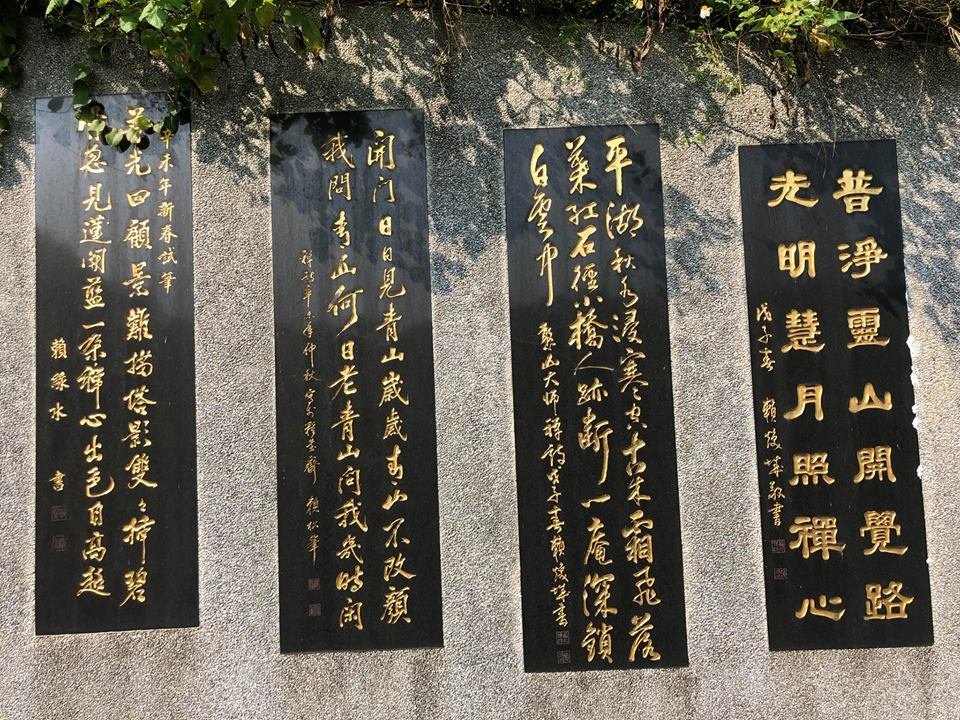 普淨靈山開覺路
光明慧月照禪心
戊子春 賴敬書
平湖秋水浸寒空古木霜飛落
葉紅石徑小橋人跡斷一庵深鎖
白雲中 憨山大師禪詩戊子春賴書
開门日日見青山歲歲青山不改顏
我問青山何日老青山問我幾時閑
禪詩辛未年仲秋 賴松筆
辛未年新春試筆
光回顧景難塔影雙々掉碧
忽見蓮開藍一朵禪心出色自高超
賴錄水 書